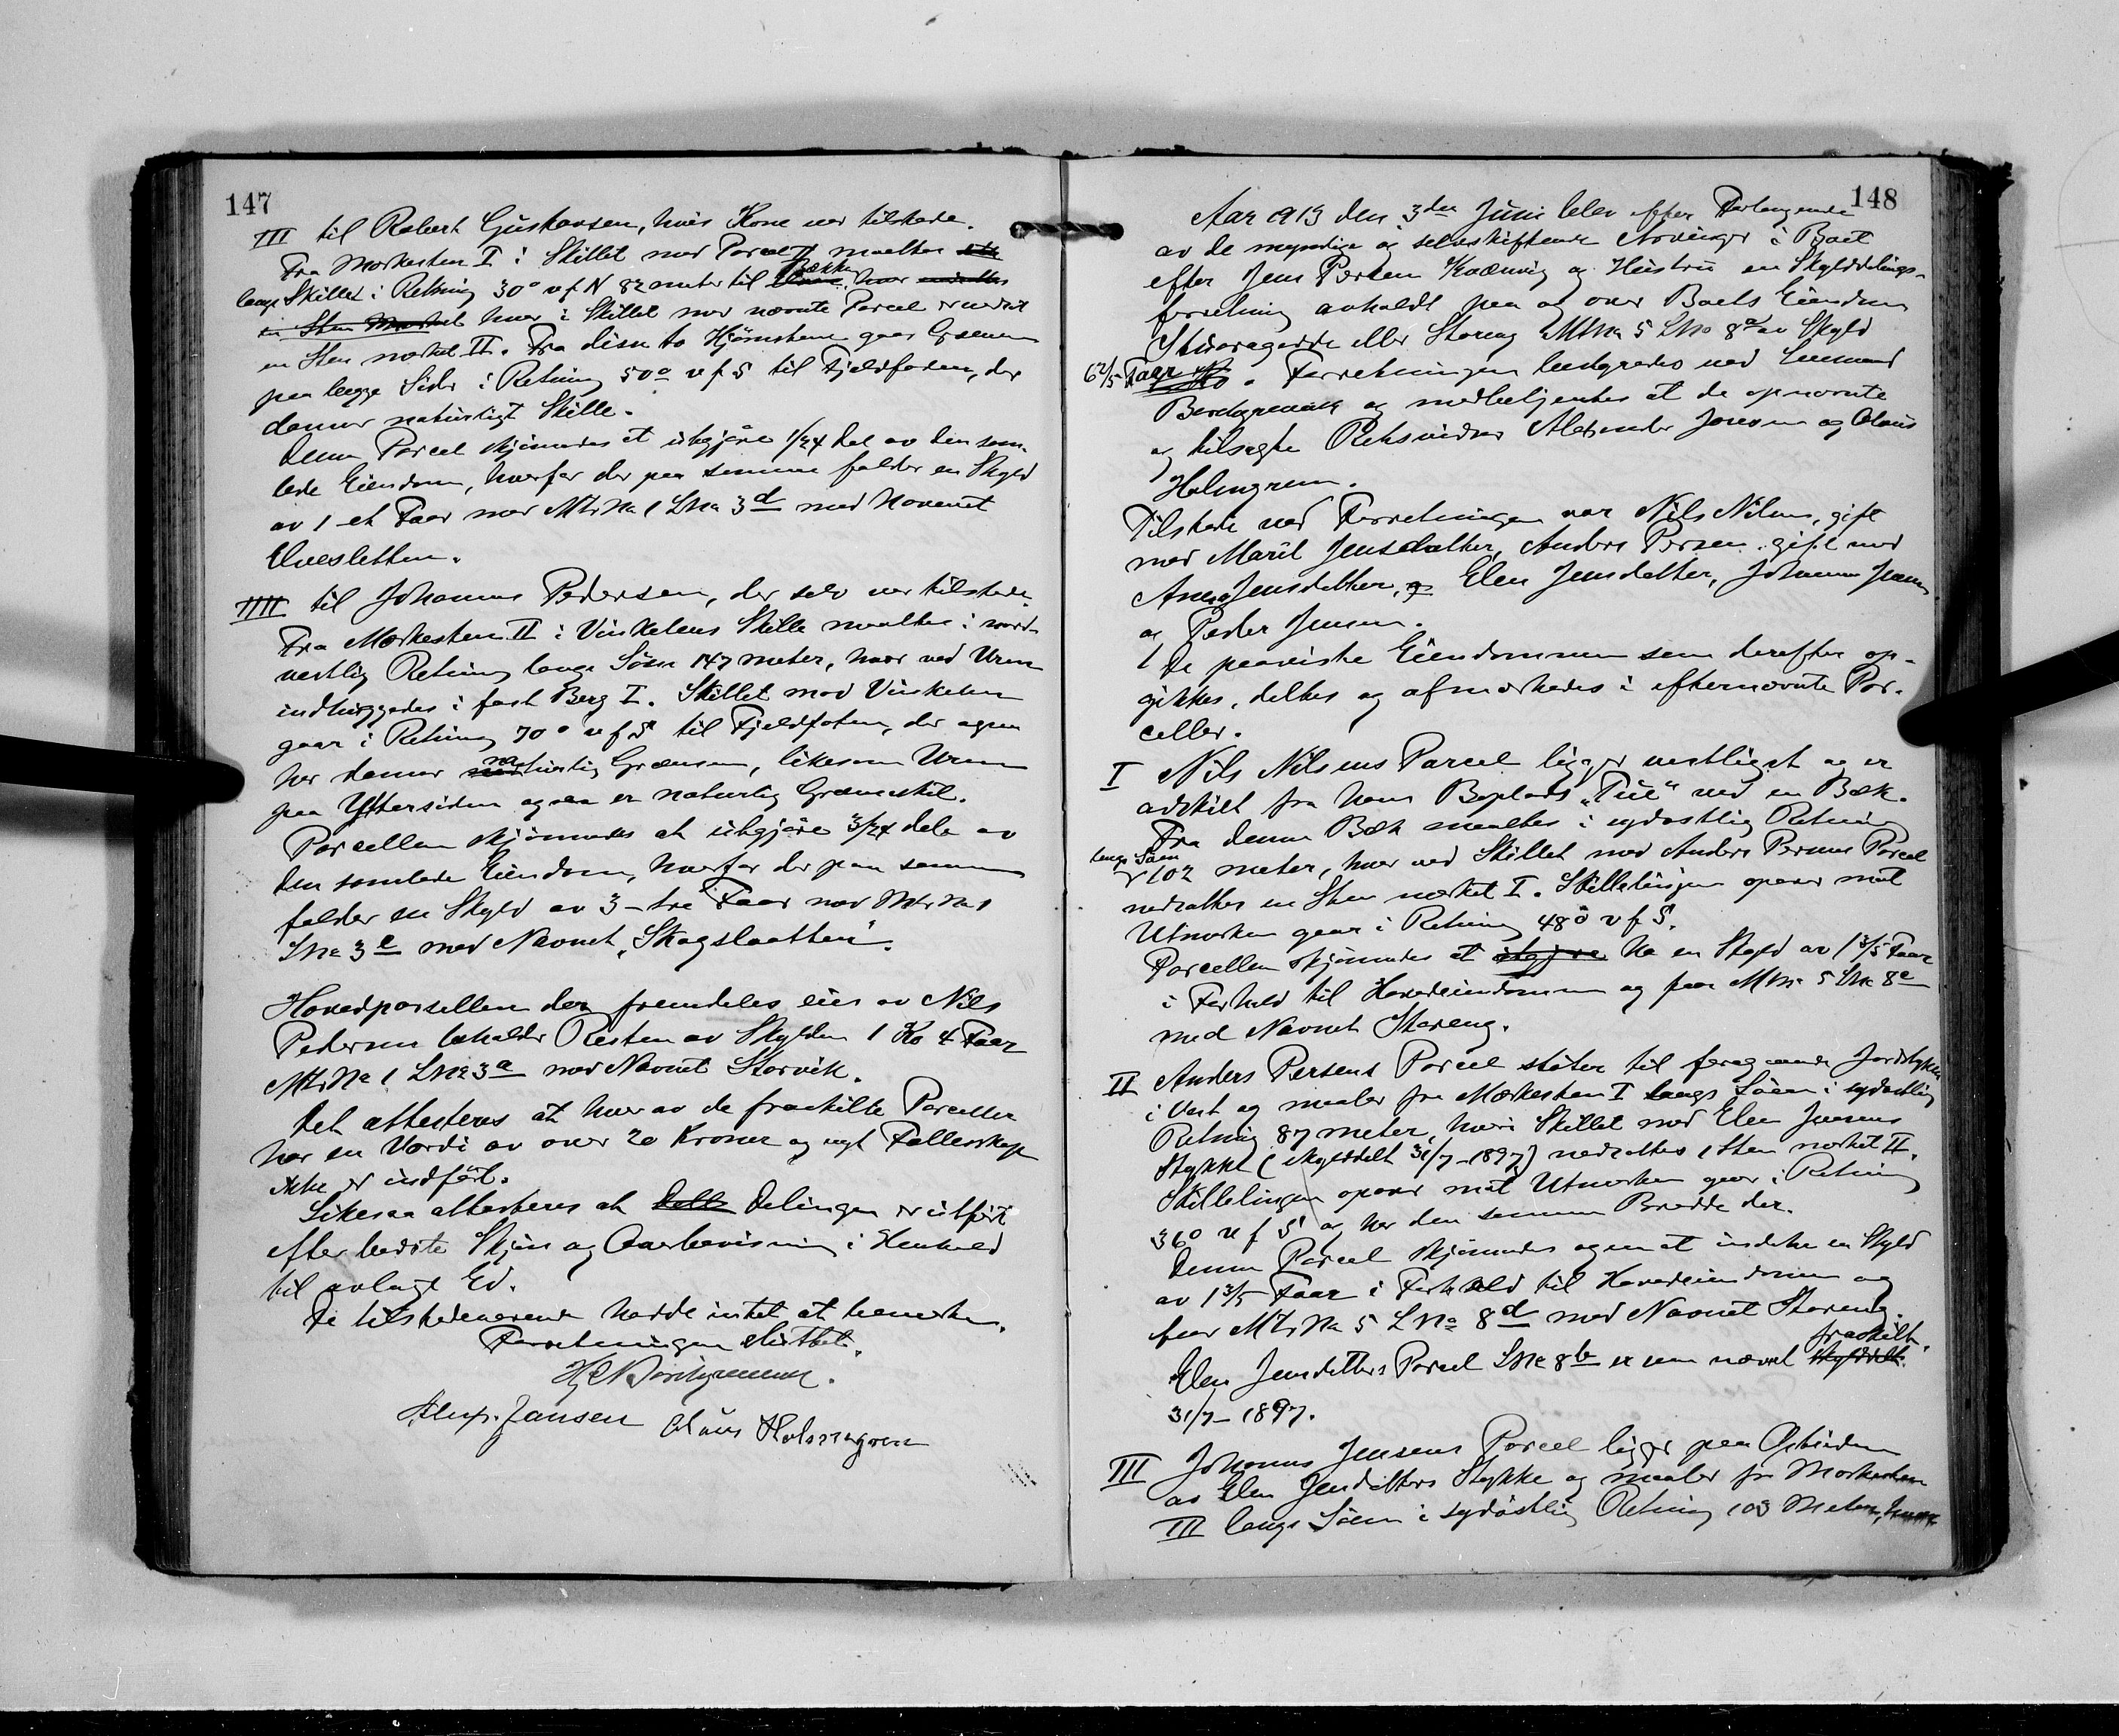 147
III til Robert Gustavsen, hvis Kone var tilstede.
Fra Merkesten I i Skillet med Parcel II maaltes
langs Skillet i Retning 30° v f N 82 meter til Bækken, hvor
hvor i Skillet mod nævnte Parcel er nedsat
en Sten merket II. Fra disse to Hjørnstene gaar Grænsen
paa begge Sider i Retning 50° v f S til Fjeldfoden, der
danner naturligt Skille.
Denne Parcel skjønnedes at utgjøre 1/24 Del av den sam-
lede Eiendom, hvorfor der paa samme falder en Skyld
av 1 et Faar med Mtr No 1 L No 3d med Navnet
Elvesletten.
IIII til Johannes Pedersen, der selv var tilstede.
Fra Merkesten II i Vinkelens Skille maaltes i nord-
vestlig Retning langs Søen 147 meter, hvor ved Uren
indhuggedes i fast Berg I. Skillet mod Vinkelen
gaar i Retning 70° v f S til Fjeldfoten, der ogsaa
her danner naturlig Grænse, likesom Uren
paa Yttersiden ogsaa er naturlig Grænseskil.
Parcellen skjønnedes at utgjøre 3/24 dele av
den samlede Eiendom, hvorfor der paa samme
falder en Skyld av 3 - tre Faar med Mtr No 1
L No 3e med Navnet „Skogslaatten“.
Hovedparsellen der fremdeles eies av Nils
Pedersen beholder Resten av Skylden 1 Ko 4 Faar
Mtr No 1 L No 3a med Navnet Storvik.
Det attesteres at hver av de fraskilte Parceller
har en Værdi av over 20 Kroner og nyt Fællesskap
ikke er indført.
Likesaa attesteres at Delingen er utført
efter bedste Skjøn og Overbevisning i Henhold
til avlagt Ed.
De tilstedeværende hadde intet at bemerke.
Forretningen sluttet.
Alexr. Jansen Olaus Holmgren
148
Aar 1913 den 3die Juni blev efter Forlangende
av de myndige og selvskiftende Arvinger i Boet
efter Jens Persen Kvænvig og Hustru en Skylddelings-
forretning avholdt paa og over Boets Eiendom
eller Storeng Mtr No 5 L No 8a av Skyld
6 2/5 Faar. Forretningen bestyredes ved Lensmand
og medbetjentes at de opnævnte
og tilsagte Retsvidner Alexander Jansen og Olaus
Holmgren.
Tilstede ved Forretningen var Nils Nilsen, gift
med Marit Jensdatter, Anders Persen gift med
Ane Jensdatter, Elen Jensdatter, Johannes Jensen
og Peder Jensen.
De paaviste Eiendommen som derefter op-
gikkes, deltes og afmerkedes i efternævnte Par-
celler.
I Nils Nilsens Parcel ligger vestligst og er
adskilt fra hans Boplads „Tue“ ved en Bæk.
Fra denne Bæk maaltes i sydøstlig Retning
langs Søen 102 meter, hvor ved Skillet mod Anders Persens Parcel
nedsattes en Sten merket I. Skillelinjen opover mot
Utmarken gaar i Retning 48° v f S.
Parcellen skjønnedes at ha en Skyld av 1 3/5 Faar
i Forhold til Hovedeiendommen og faar Mtr No 5 L No 8c
med Navnet Storeng.
II Anders Persens Parcel støter til foregaaende Jordstykke
i Vest og maaler fra Merkesten I langs Søen i sydøstlig
Retning 87 meter, hvor i Skillet mod Elen Jensens
Stykke (skylddelt 31/7-1897) nedsattes 1 Sten merket II.
Skillelinjen opover mot Utmarken gaar i Retning
36° v f S og har den samme Bredde der.
Denne Parcel skjønnedes ogsaa at indeha en Skyld
av 1 3/5 Faar i Forhold til Hovedeiendommen og
faar Mtr No 5 L No 8d med Navnet Storeng.
Elen Jensdatters Parcel L No 8b er som nævnt fraskilt
31/7-1897.
III Johannes Jensens Parcel ligger paa Østsiden
av Elen Jensdatters Stykke og maaler fra Merkesten
III langs Søen i sydøstlig Retning 103 Meter, hvor